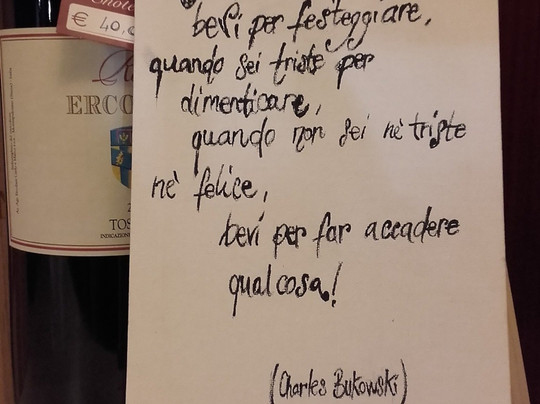 € 40,
ERCO
TOS
bevi per festeggiare,
quando sei triste per
dimenticare,
quando non sei nè triste
nè felice,
bevi per far accadere
qualcosa!
(Charles Bukowski)